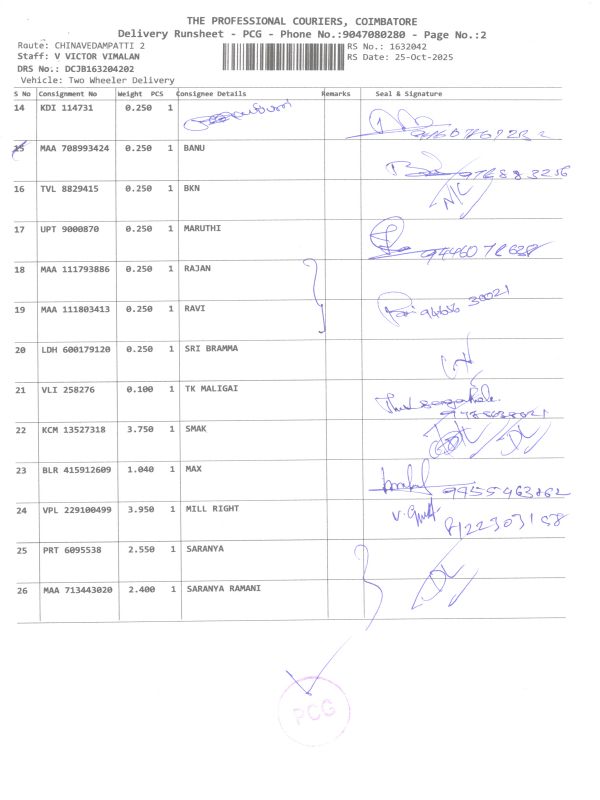 THE PROFESSIONAL COURIERS, COIMBATORE
Delivery Runsheet - PCG - Phone No.:9047080280 - Page No.:2
Route: CHINAVEDAMPATTI 2 RS No.: 1632042
Staff: V VICTOR VIMALAN RS Date: 25-Oct-2025
DRS No.: DCJB163204202
Vehicle: Two Wheeler Delivery
S No Consignment No Weight PCS Consignee Details Remarks Seal & Signature
14 KDI 114731 0.250 1
15 MAA 708993424 0.250 1 BANU
16 TVL 8829415 0.250 1 BKN
17 UPT 9000870 0.250 1 MARUTHI
18 MAA 111793886 0.250 1 RAJAN
19 MAA 111803413 0.250 1 RAVI
20 LDH 600179120 0.250 1 SRI BRAMMA
21 VLI 258276 0.100 1 TK MALIGAI
22 KCM 13527318 3.750 1 SMAK
23 BLR 415912609 1.040 1 MAX
9455463862
24 VPL 229100499 3.950 1 MILL RIGHT
25 PRT 6095538 2.550 1 SARANYA
26 MAA 713443020 2.400 1 SARANYA RAMANI
PCG